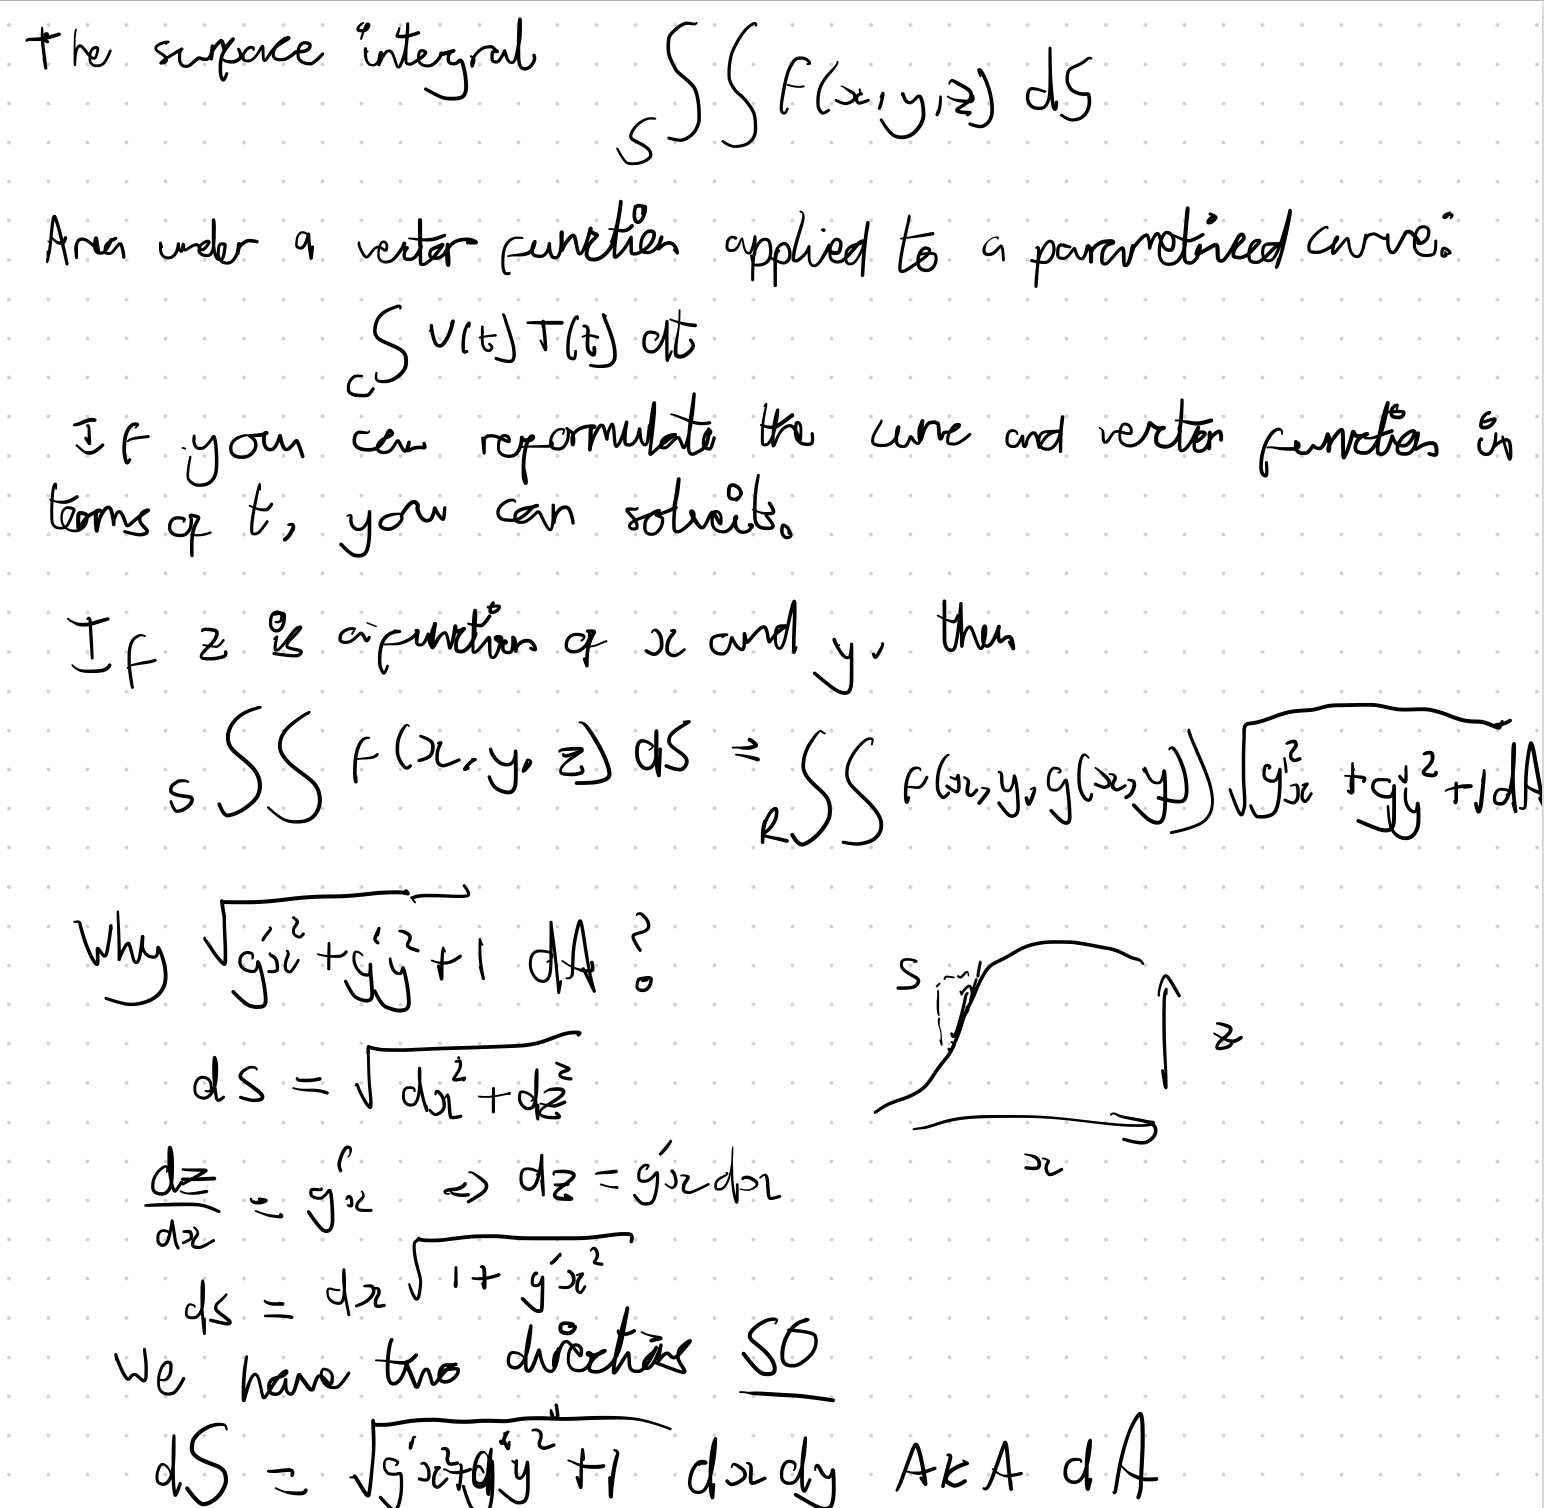 The surface integral ∫∫_S F(x, y, z) dS
Area under a vector function applied to a parametrized curve:
∫_C V(t) T(t) dt
If you can reformulate the curve and vector function in
terms of t, you can solve it.
If z is a function of x and y, then
∫∫_S F(x, y, z) dS = ∫∫_R F(x, y, g(x, y)) √(g'x² + g'y² + 1) dA
Why √(g'x² + g'y² + 1) dA?
S
z
x
ds = √(dx² + dz²)
dz/dx = g'x => dz = g'x dx
ds = dx √(1 + g'x²)
We have two directions SO
dS = √(g'x² + g'y² + 1) dx dy AKA dA